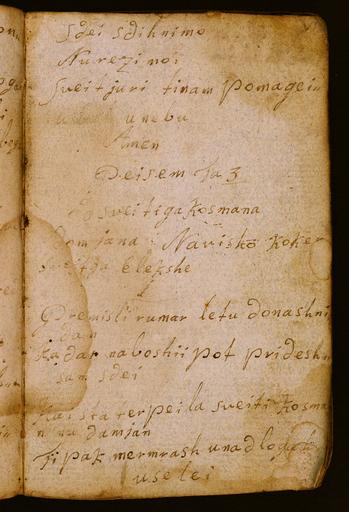 sdei sdihnimo
Nu rezi noi
sveit juri tinam pomagei
unebu
Amen
Peisem ta 3
sveitiga kosmana
jana Navisko koker
sveitga elekshe
Premisli rumar letu donashni
dan
Kadar naboshii pot pridesh
sam sdei
Kai sta terpeila sveiti kosma
nu damjan
Ti pak mermrash unadlogah
uselei